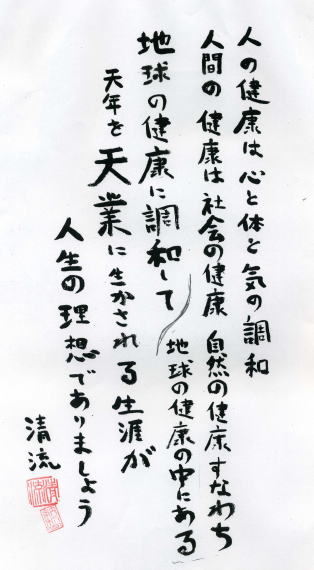 人の健康は心と体と気の調和
人間の健康は社会の健康 自然の健康すなわち
地球の健康の中にある
地球の健康に調和して
天年を天業に生かされる生涯が
人生の理想でありましょう
清流